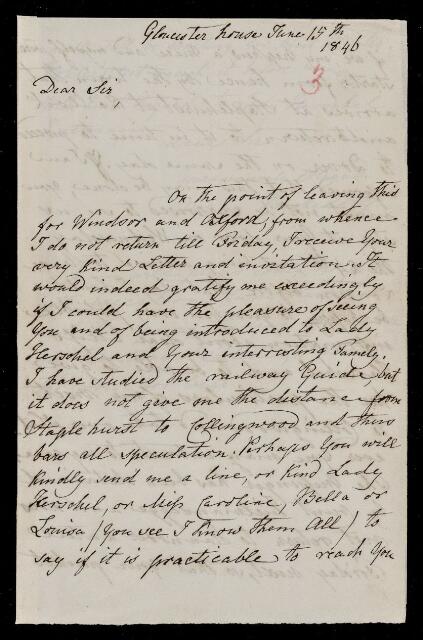 Gloucester house June 15th
1846
3
Dear Sir,
On the point of leaving this
for Windsor and Oxford, from whence
I do not return till Friday, I receive Your
very kind Letter and invitation. It
would indeed gratify me exceedingly
if I could have the pleasure of seeing
You and of being introduced to Lady
Herschel and Your interesting Family.
I have studied the railway Guide, but
it does not give me the distance from
Staplehurst to Collingwood and this
bars all speculation. Perhaps You will
kindly send me a line, or kind Lady
Herschel, or Miss Caroline, Bella or
Louisa (You see I know them All) to
say if it is practicable to reach You